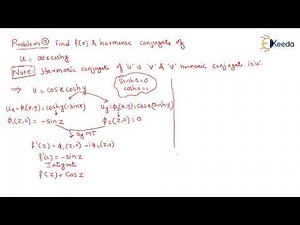 Problem ⑤ Find f(z) & harmonic conjugate of
u = cosx coshy
Note: Harmonic conjugate of 'u' is 'v' & 'v' harmonic conjugate is 'u'.
⇒ u = cosx coshy
sinh0 = 0
cosh0 = 1
uₓ = φ₁(x,y) = coshy(-sinx)
u_y = φ₂(x,y) = cosx(sinhy)
φ₁(z,0) = -sinz
φ₂(z,0) = 0
By MT
f'(z) = φ₁(z,0) - iφ₂(z,0)
f'(z) = -sinz
Integrat
f(z) = cosz
Ekeeda